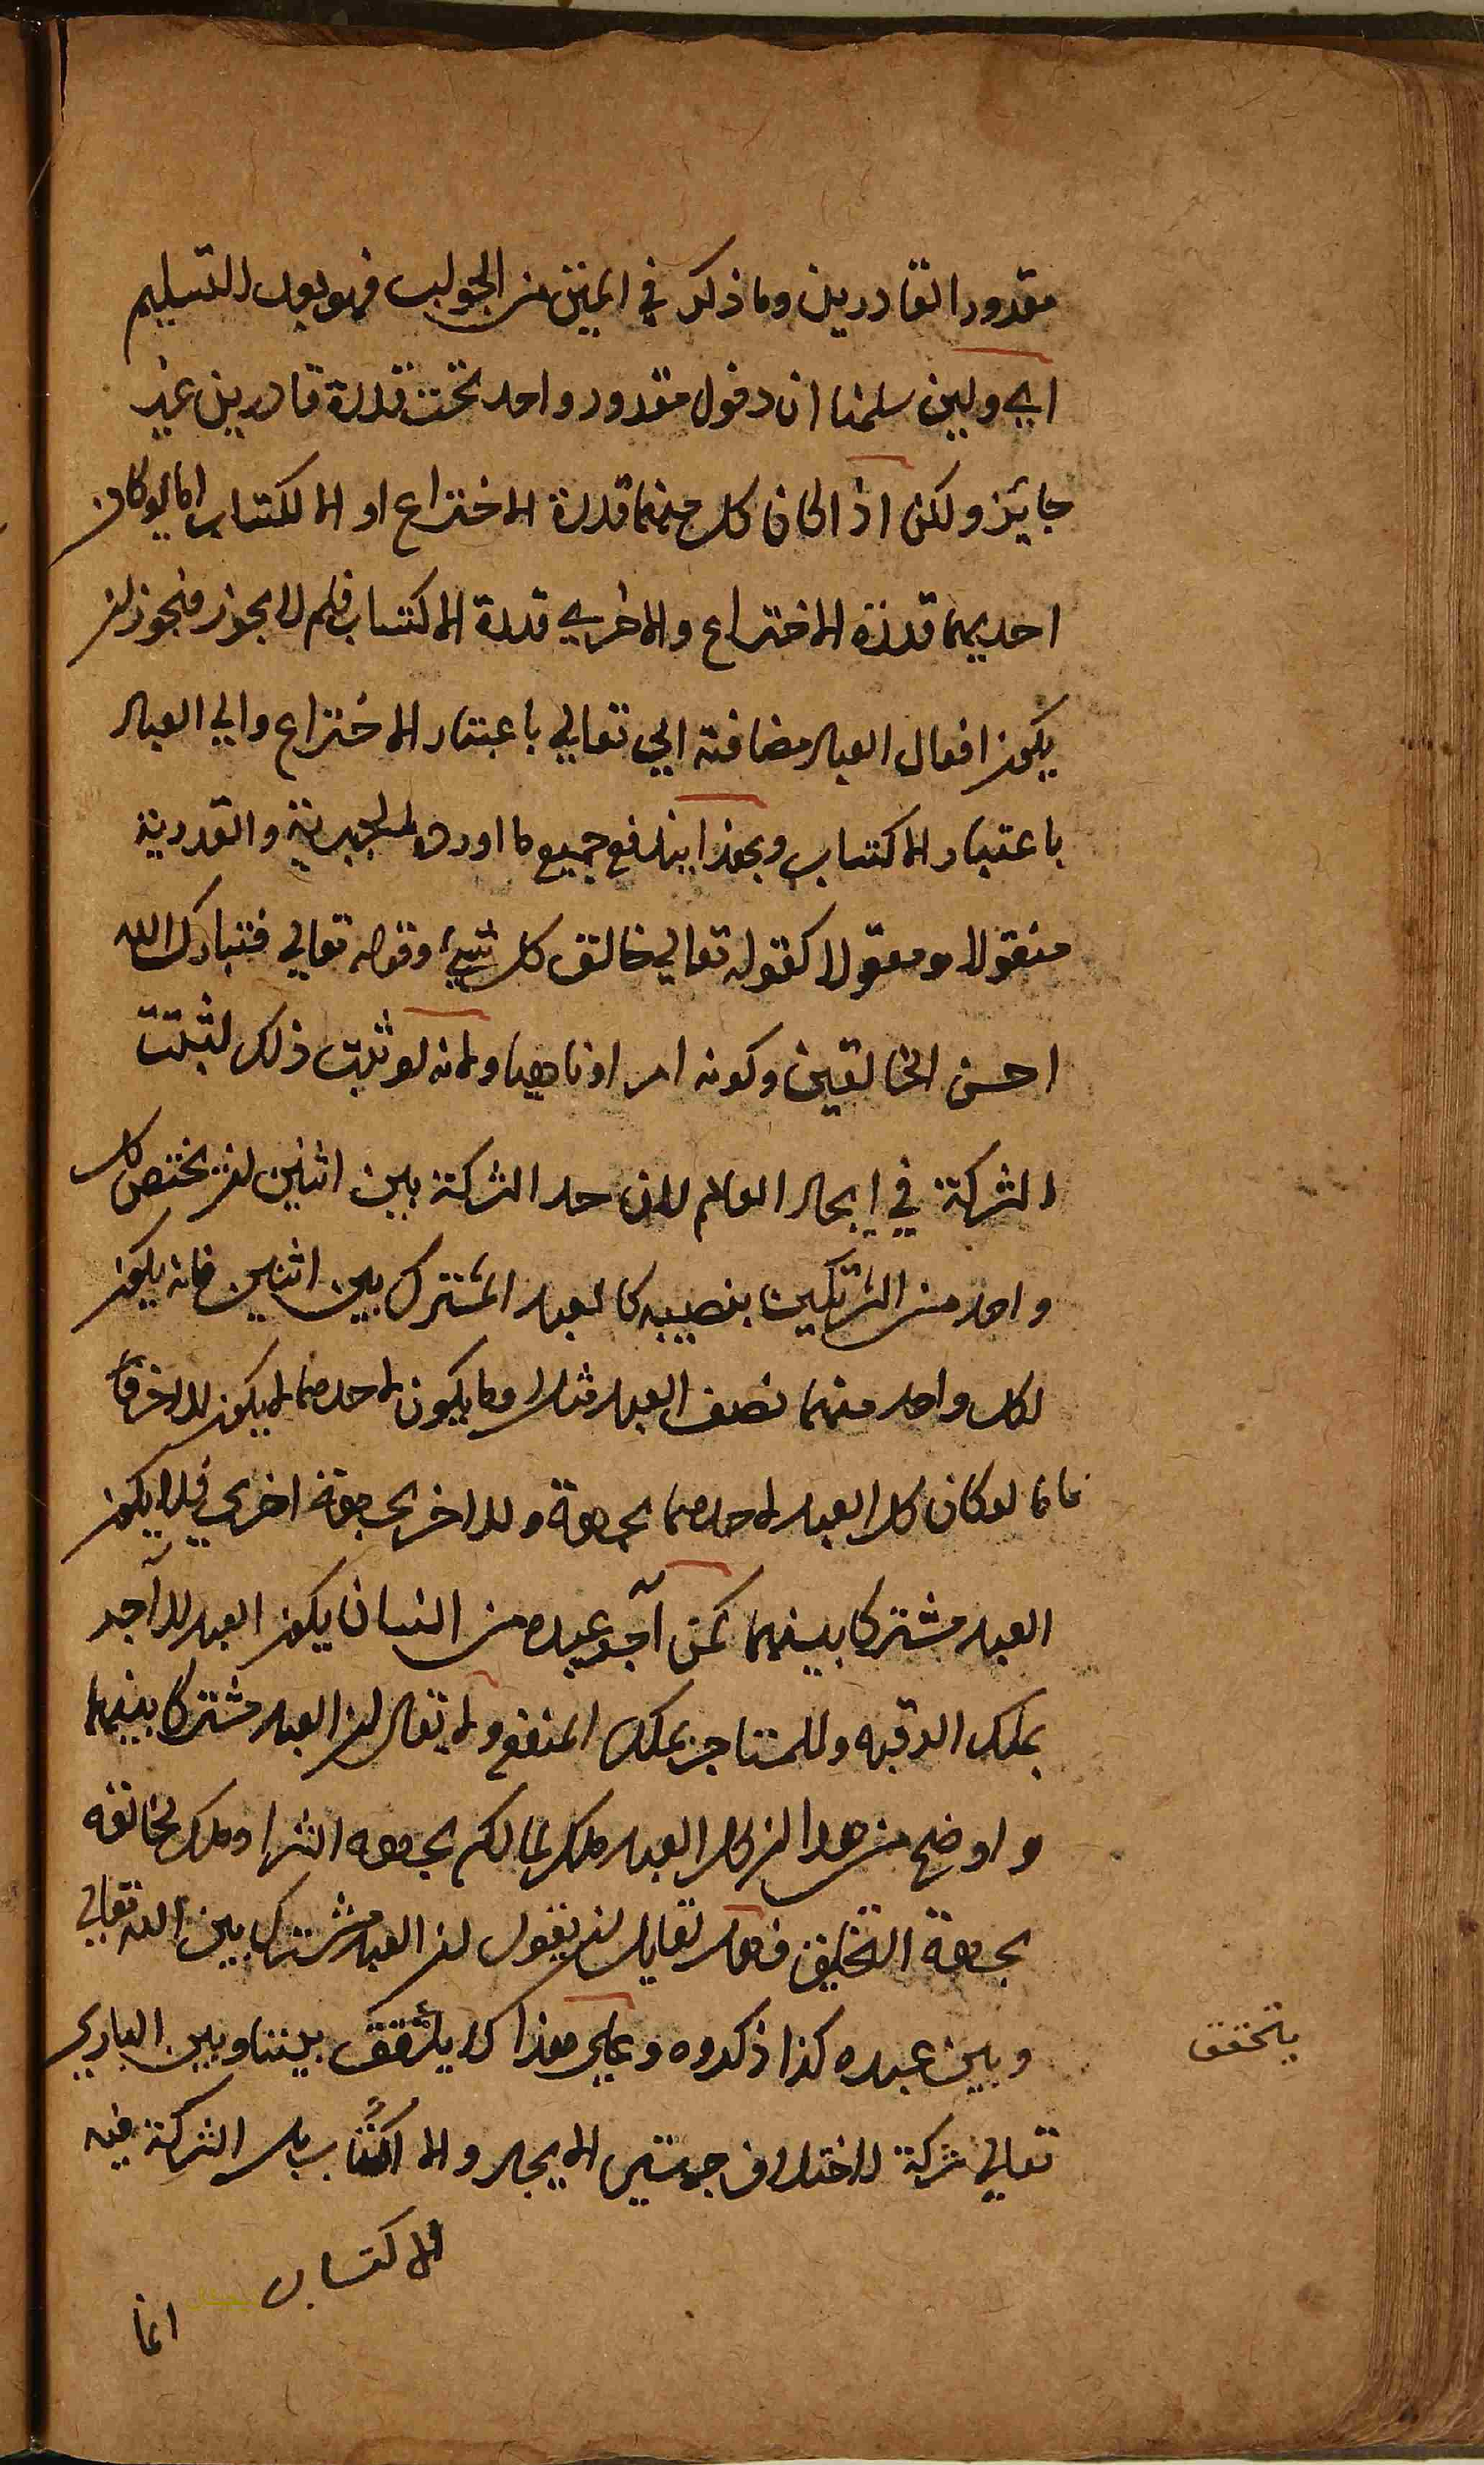 مقدور القادرين وما ذكر في المتن من الجواب فهو بعد التسليم
اي ولين سلمنا ان دخول مقدور واحد تحت قدرة قادرين غير
جايز ولكن اذا كان كل منهما قدرة الاختراع او الاكتساب اما لو كان
احديهما قدرة الاختراع والاخري قدرة الاكتساب فلم لا يجوز فيجوز ان
يكون افعال العباد مضافة الي تعالي باعتبار الاختراع والي العباد
باعتبار الاكتساب وبهذا يندفع جميع ما اورده الجبرية والقدرية
منقولا ومعقولا كقوله تعالي خالق كل شيء وقوله تعالي فتبارك الله
احسن الخالقين وكونه امرا وناهيا ولانه لو ثبت ذلك لثبتت
الشركة في ايجاد العالم لان حد الشركة بين اثنين ان يختص كل
واحد من الشريكين بنصيبه كالعبد المشترك بين اثنين فانه يكون
لكل واحد منهما نصف العبد مثلا وما يكون لاحدهما لا يكون للاخر
فاما لو كان كل العبد لاحدهما بجهة وللاخر بجهة اخري فلا يكون
العبد مشتركا بينهما كمن آجر عبده من انسان يكون العبد للآجر
بملك الرقبه وللمستاجر بملك المنفع ولا يقال ان العبد مشتركا بينهما
واوضح من هذا ان كل العبد ملك لمالكه بجهه الشرا وملك لخالقه
بجهة التخليق فهل لقايل ان يقول ان العبد مشترك بين الله تعالي
وبين عبده كذا ذكروه وعلي هذا لا يتحقق بيننا وبين الباري
يتحقق
تعالي شركة لاختلاف جهتين الايجاد والاكتساب بل الشركة فيه
الاكتساب
انما